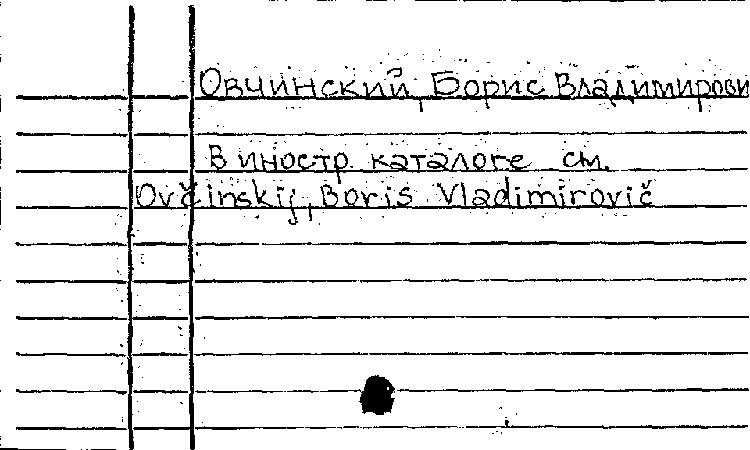 Овчинский, Борис Владимирови
В иностр. каталоге см.
Ovčinskij, Boris Vladimirovič